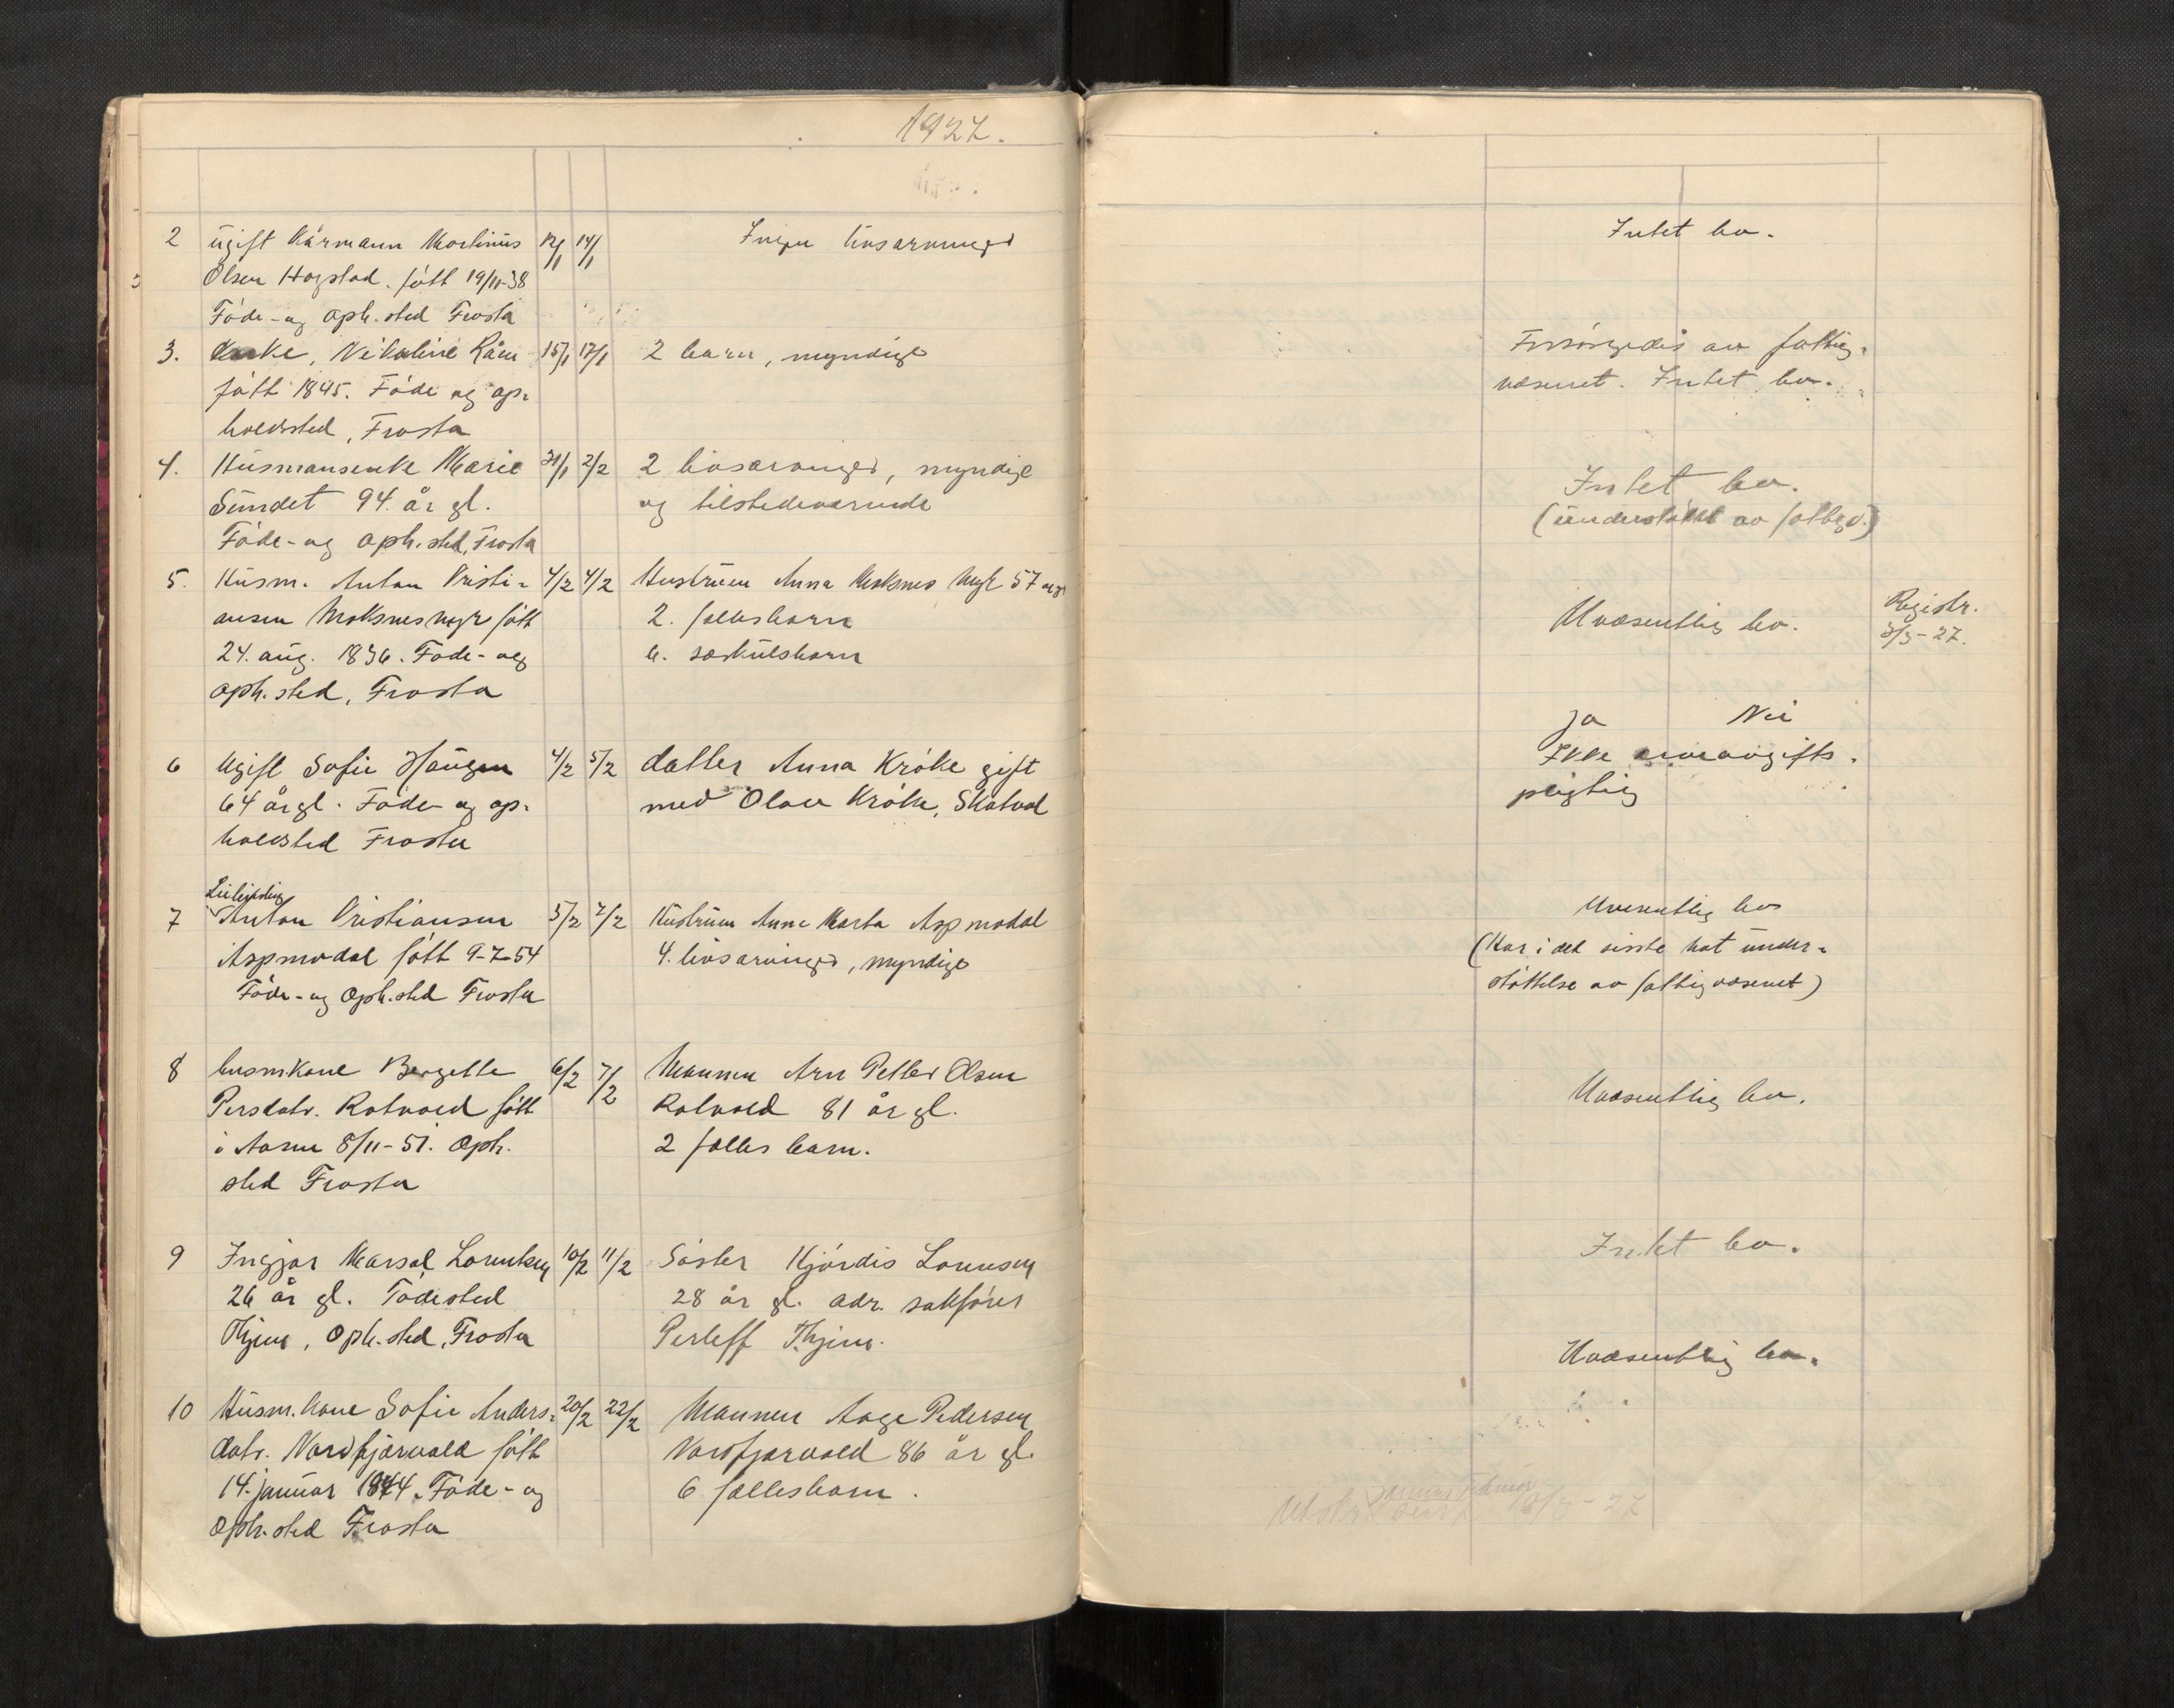 1927.
2 ugift Kårmann Martinus 12/1 14/1 Ingen livsarvinger Intet bo.
Olsen Hogstad. født 19/11-38
Føde- og oph. sted Frosta
3. Enke, Nikoline Råen 15/1 17/1 2 barn, myndige Forsørgedes av fattig-
født 1845. Føde og op- væsenet. Intet bo.
holdssted, Frosta
4. Husmansenke Marie 31/1 2/2 2 livsarvinger, myndige Intet bo.
Sundet 94 år gl. og tilstedeværende (understøttet av fattigv.)
Føde- og oph. sted, Frosta
5. Husm. Anton Kristi- 4/2 4/2 Hustruen Anna Moksnes 57 aar
ansen Moksnesmyr født 2. fællesbarn Uvæsentlig bo. Registr.
24. aug. 1836. Føde- og 6. særkulsbarn 3/3-27.
oph. sted, Frosta
Ja Nei
6 Ugift Sofie Haugen 4/2 5/2 datter Anna Krøke gift Ikke arveavgifts-
64 år gl. Føde- og op- med Olav Krøke, Skatval pligtig
holdsted Frosta
Leilending
7 Anton Kristiansen 5/2 7/2 Hustruen Anne Marta Aspmodal Uvesentlig bo
Aspmodal født 9-7-54 4. livsarvinger, myndige (Har i det siste hat under-
Føde- og Oph. sted Frosta støttelse av fattigvæsenet)
8 husmkone Bergette 6/2 7/2 Mannen Arn Petter Olsen
Persdatr. Rotvold født Rotvold 81 år gl. Uvæsentlig bo.
i Aasen 8/11-51. Oph. 2 fælles barn.
sted Frosta
9 Ingjar Marsal Lorentsen 10/2 11/2 Søster Hjørdis Lorensen Intet bo.
26 år gl. Fødested 28 år gl. adr. sakfører
Thjem, Oph. sted, Frosta Perleff Thjem.
Uvæsentlig bo.
10 Husm. kone Sofie Anders- 20/2 22/2 Mannen Aage Pedersen
datr. Nordfjærvold født Nordfjærvold 86 år gl.
14. januar 1844. Føde- og 6 fællesbarn.
Oph. sted Frosta
januar Februar
/3-27